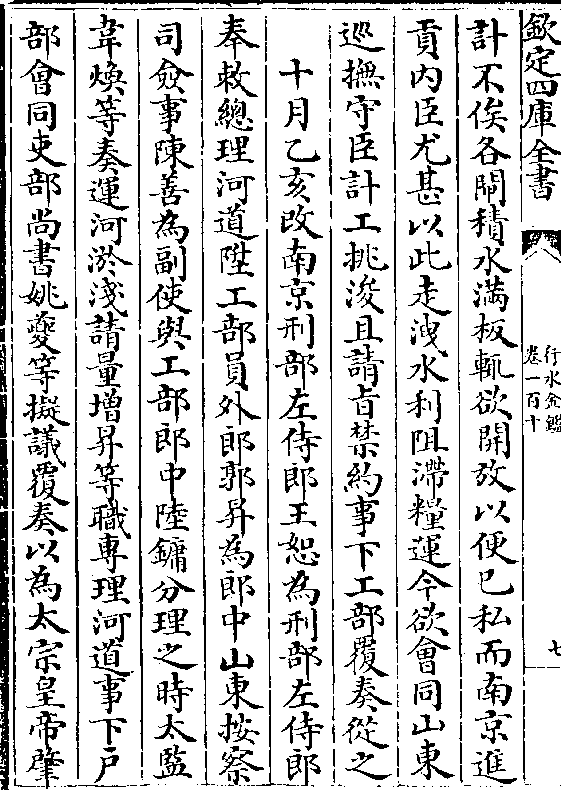 欽定四庫全書
行水金鑑
卷一百十
七
計不俟各閘積水滿板輒欲開放以便己私而南京進
貢内臣尤甚以此走洩水利阻滯糧運今欲會同山東
巡撫守臣計工挑浚且請旨禁約事下工部覆奏從之
十月乙亥改南京刑部左侍郎王恕為刑部左侍郎
奉敕總理河道陞工部員外郎郭昇為郎中山東按察
司僉事陳善為副使與工部郎中陸鏞分理之時太監
韋煥等奏運河淤淺請量增昇等職專理河道事下戶
部會同吏部尚書姚夔等擬議覆奏以為太宗皇帝肇